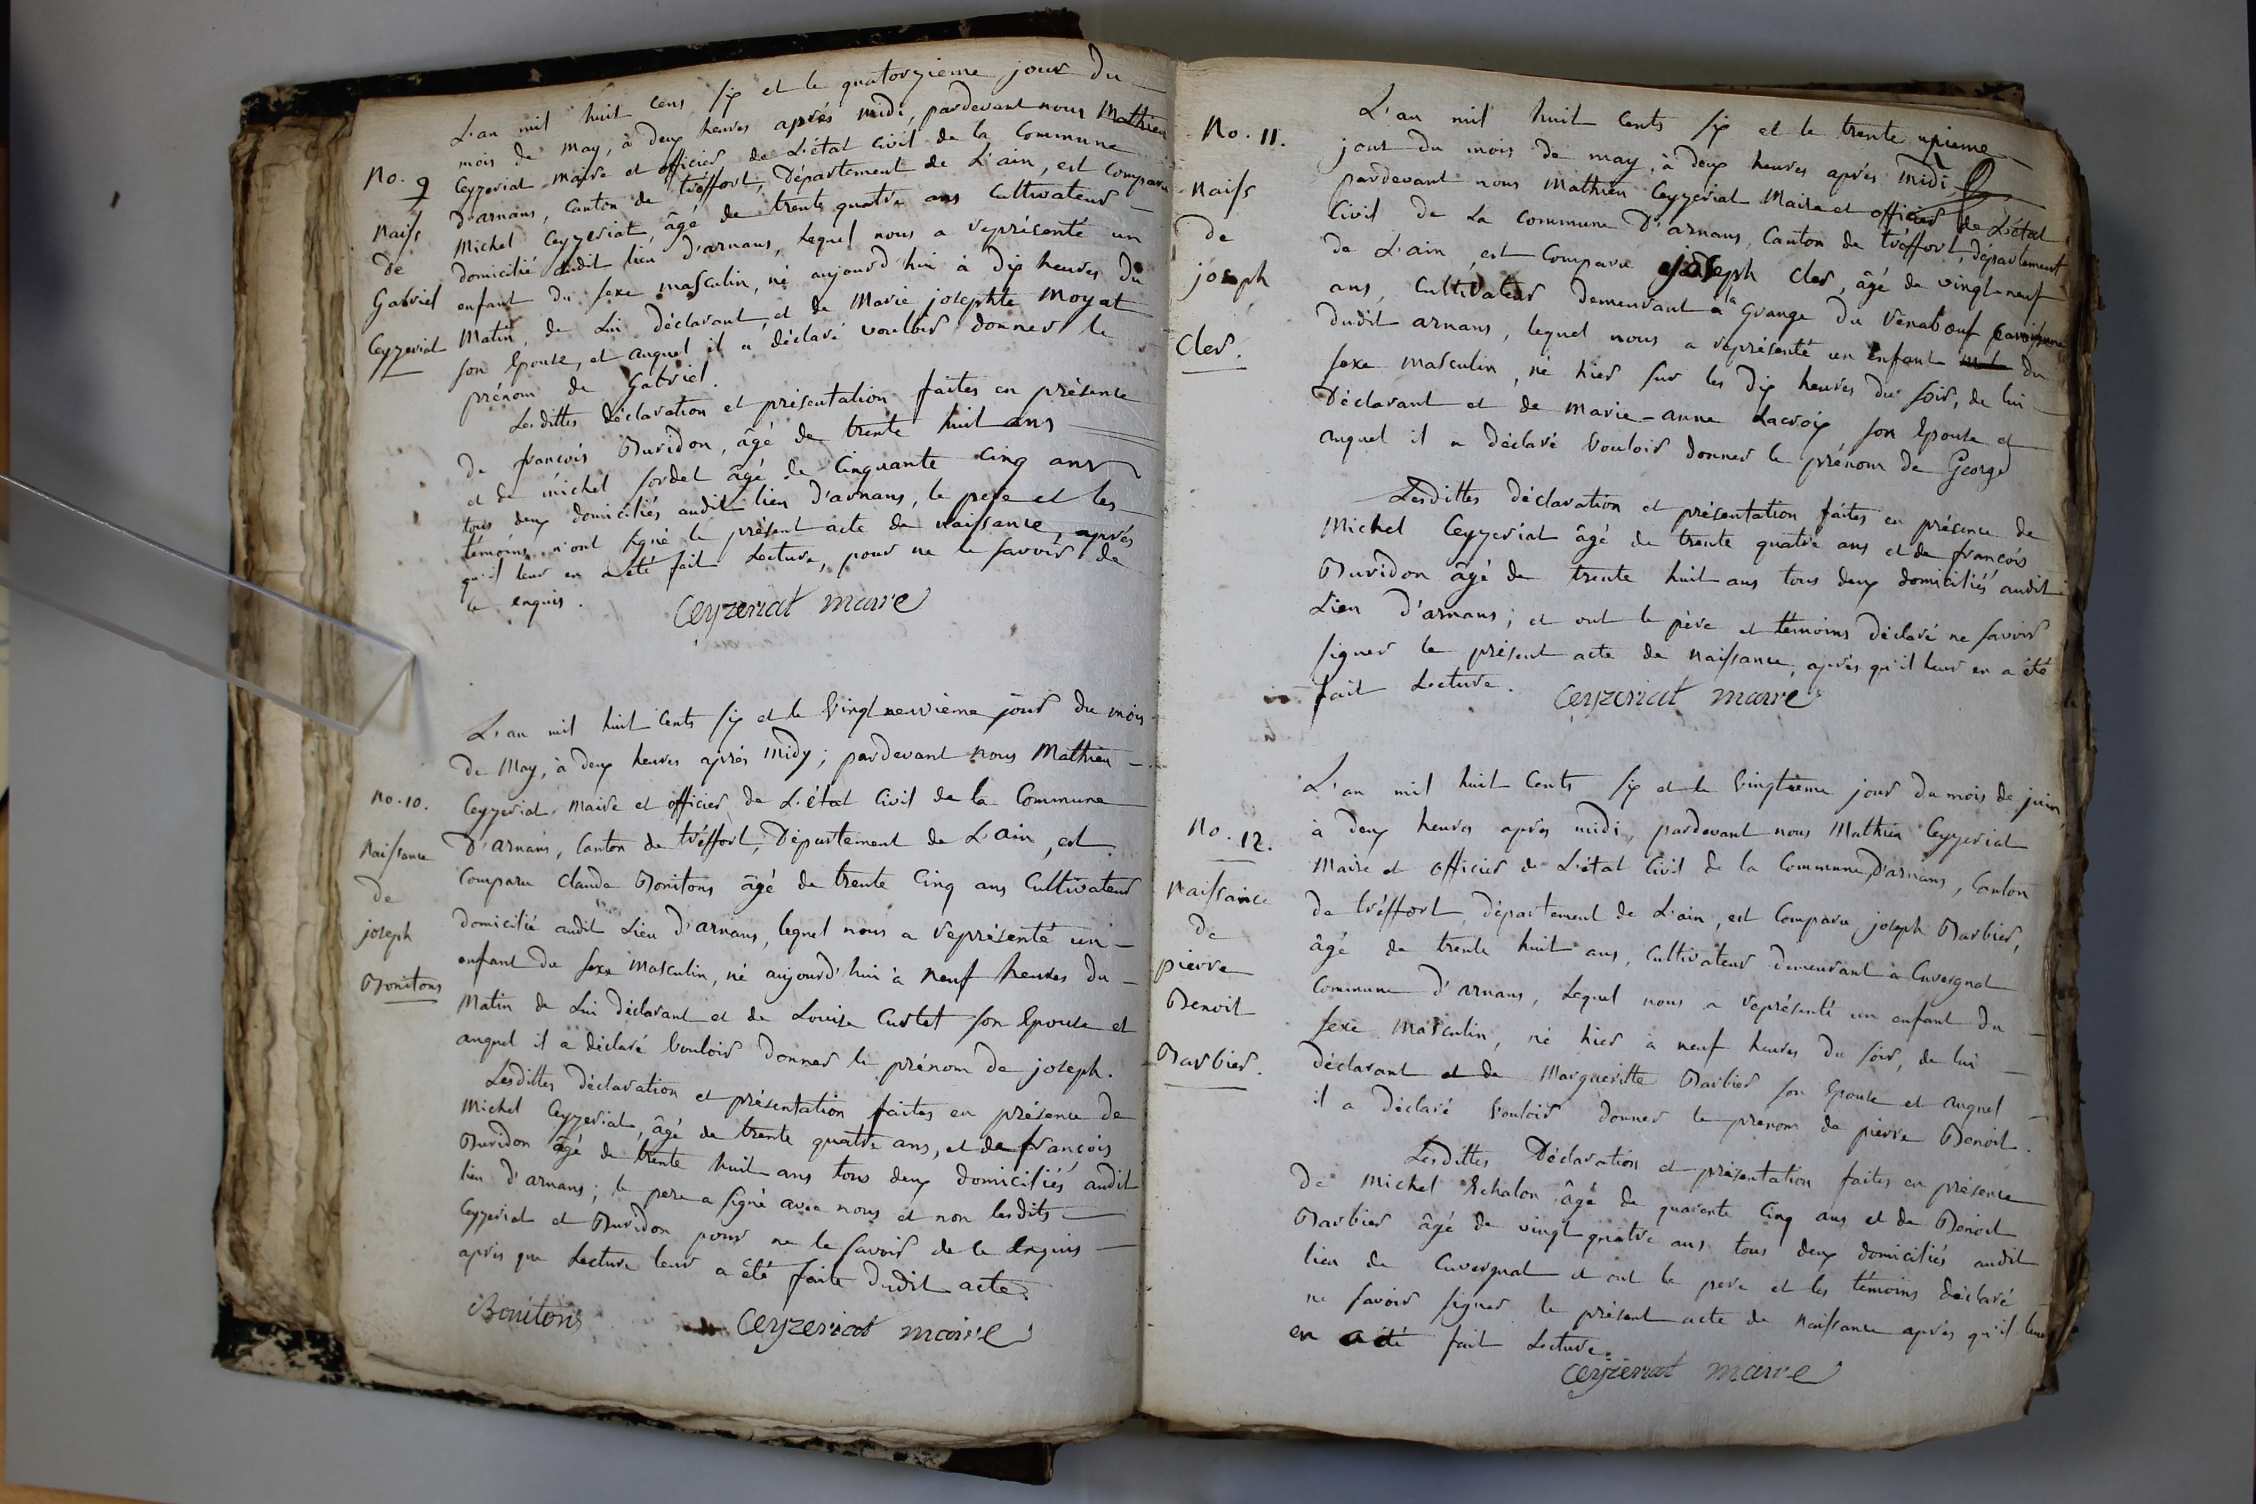 L'an mil huit cens six et le quatorzieme jour du
mois de may, à deux heures après midi, pardevant nous Mathieu
No. 9
Ceyzeriat maire et officier de L'état civil de la Commune
D'arnans, Canton de tréffort, Département de L'ain, est Comparu
Naiss
Michel Ceyzeriat, âgé de trente quatre ans Cultivateur
de
domicilié audit lieu d'arnans, Lequel nous a représenté un
Gabriel
enfant du sexe masculin, né aujourd'hui à dix heures du
Ceyzeriat
Matin, de Lui déclarant, et de Marie josephte Moyat
son Epouse, et auquel il a déclaré vouloir donner le
prénom de Gabriel.
Lesdittes déclaration et présentation faites en présence
de françois Buridon, âgé de trente huit ans
et de michel sordet âgé de Cinquante Cinq ans
tous deux domiciliés audit lieu D'arnans, le pere et les
témoins n'ont signé le présent acte de naissance, après
qu'il leur en a été fait Lecture, pour ne le savoir de
ce enquis.
Ceyzeriat maire
L'an mil huit Cents six et le Vingt neuvième jour du mois
De May, à deux heures après midy; pardevant nous Mathieu
No. 10.
Ceyzeriat, maire et officier de L'état Civil de la Commune
Naissance
D'arnans, Canton de tréffort, Département de L'ain, est
de
Comparu claude Bonitons âgé de trente Cinq ans Cultivateur
joseph
domicilié audit Lieu d'arnans, lequel nous a représenté un
Bonitons
enfant du sexe Masculin, né aujourd'hui à neuf heures du
Matin de Lui déclarant et de Louise Curtet son Epouse et
auquel il a déclaré Vouloir donner le prénom de joseph.
Lesdittes déclaration et présentation faites en présence de
Michel Ceyzeriat, âgé de trente quatre ans, et de françois
Buridon âgé de trente huit ans tous deux domiciliés audit
lieu d'arnans; le pere a signé avec nous et non lesdits
Ceyzeriat et Buridon pour ne le savoir de le Enquis
après que Lecture leur a été faite dudit acte.
Bonitons
Ceyzeriat maire
L'an mil huit Cents six et le trente unieme
No. 11.
jour du mois de may, à deux heures après midi
Naiss
pardevant nous Mathieu Ceyzeriat Maire et officier de L'état
de
Civil de La Commune D'arnans, Canton de tréffort, département
joseph
de L'ain, est Comparu joseph Cler, âgé de vingt-neuf
Cler.
ans, Cultivateur demeurant à la Grange du Vénabœuf paroisse
dudit arnans, lequel nous a représenté un enfant du
sexe masculin, né hier sur les dix heures du soir, de lui
Déclarant et de Marie-anne Lacroix, son Epouse et
auquel il a déclaré Vouloir donner le prénom de George
Lesdittes déclaration et présentation faites en présence de
Michel Ceyzeriat âgé de trente quatre ans et de françois
Buridon âgé de trente huit ans tous deux domiciliés audit
Lieu D'arnans; et ont le père et témoins déclaré ne savoir
signer le présent acte de naissance, après qu'il leur en a été
fait Lecture.
Ceyzeriat maire
L'an mil huit Cents six et le Vingtième jour du mois de juin,
No. 12.
à deux heures après midi, pardevant nous Mathieu Ceyzeriat
Maire et officier de L'état Civil de la Commune D'arnans, Canton
Naissance
de tréffort, département de L'ain, est Comparu joseph Barbier,
de
âgé de trente huit ans, Cultivateur demeurant à Cuvergnat
pierre
Commune D'arnans, Lequel nous a représenté un enfant du
Benoit
sexe masculin, né hier à neuf heures du soir, de lui
Barbier.
déclarant et de Margueritte Barbier son Epouse et auquel
il a déclaré Vouloir donner le prénom de pierre Benoit.
Lesdittes Déclaration et présentation faites en présence
de Michel Echalon âgé de quarente Cinq ans et de Benoit
Barbier âgé de vingt quatre ans tous deux domiciliés audit
lieu de Cuvergnat et ont le pere et les témoins déclaré
ne savoir signer le présent acte de Naissance après qu'il leur
en a été fait Lecture.
Ceyzeriat maire